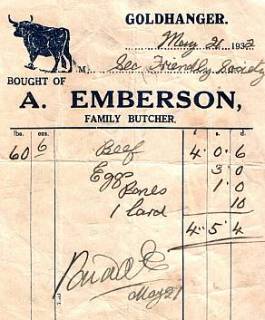 GOLDHANGER.
May 21 1932
BOUGHT OF
M Sec Friendly Society
A. EMBERSON,
FAMILY BUTCHER.
lbs. ozs. £ s. d.
60 6 Beef 4 0 6
Eggs 3 0
Bones 1 0
1 lard 10
4 5 4
May 21